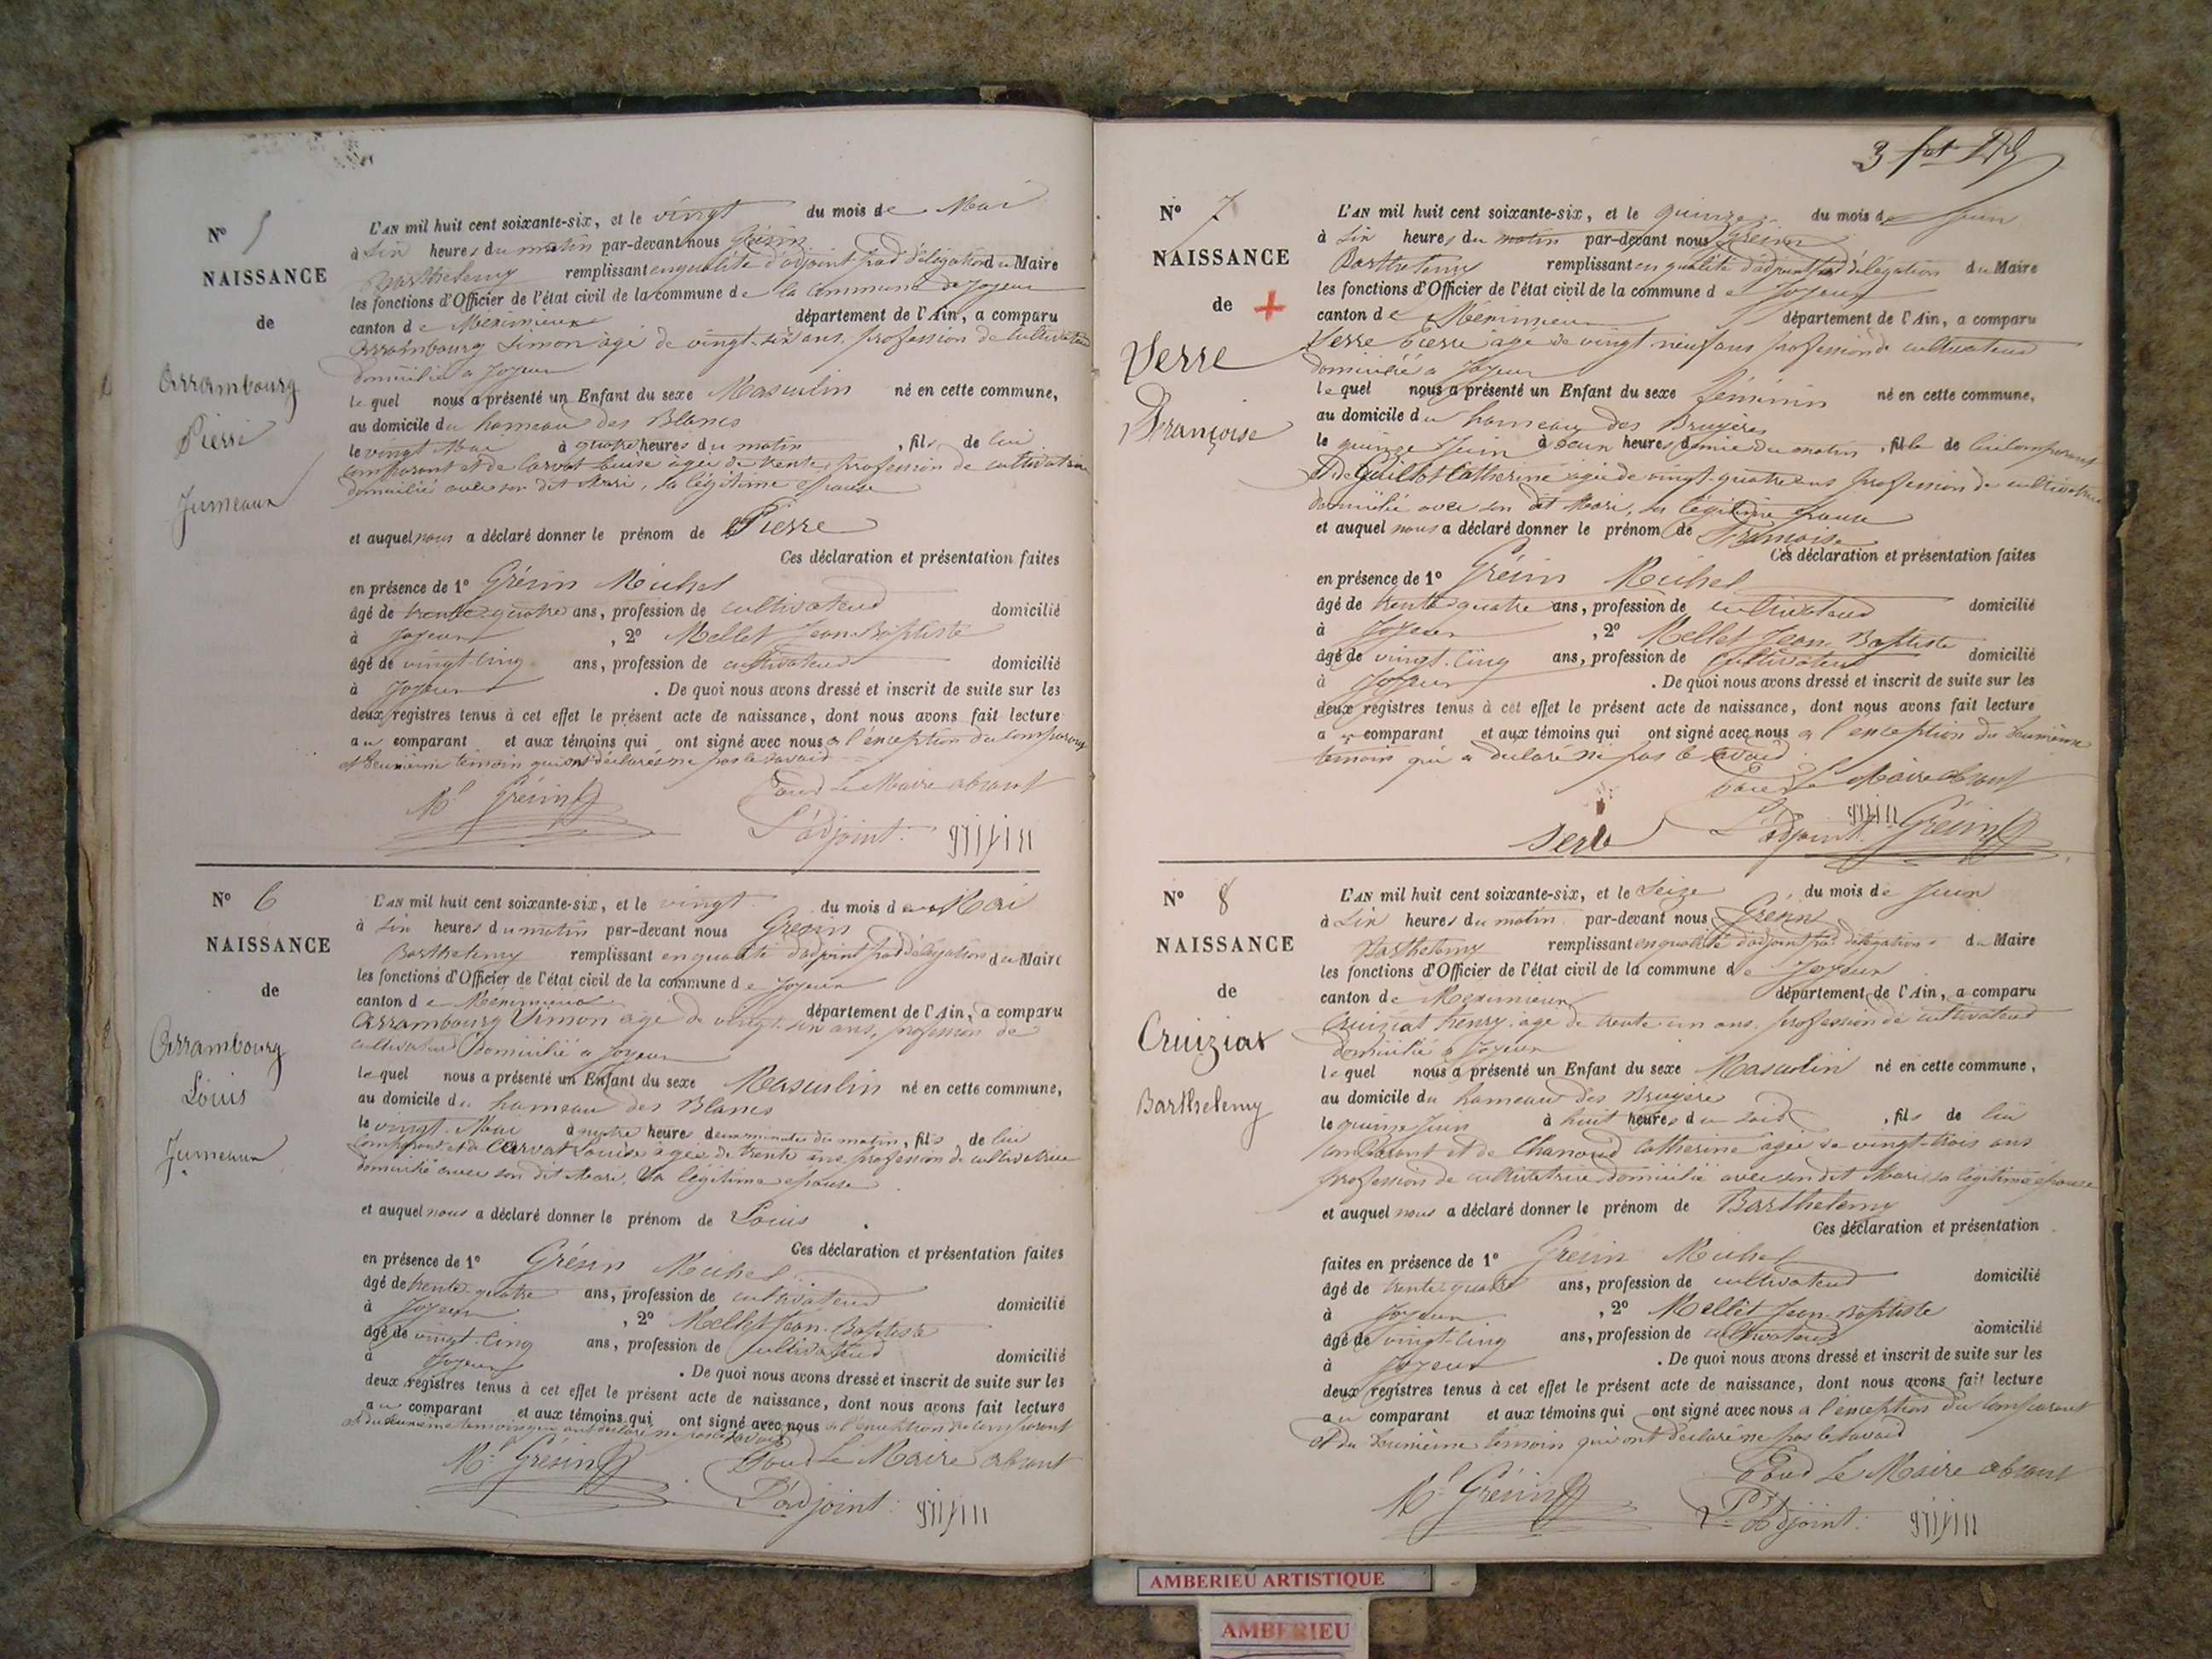 N° 5
NAISSANCE
de
Arrambourg
Pierre
Jumeaux
L'AN mil huit cent soixante-six, et le vingt du mois de Mai
à Six heures du matin par-devant nous Grésin
Barthelemy remplissant en qualité d'adjoint par délégation du Maire
les fonctions d'Officier de l'état civil de la commune de la Commune de Joyeux
canton de Meximieux département de l'Ain, a comparu
Arrambourg Simon âgé de vingt-six ans, profession de cultivateur
domicilié a Joyeux
lequel nous a présenté un Enfant du sexe Masculin né en cette commune,
au domicile du hameau des Blancs
le vingt Mai à quatre heures du matin, fils de lui
comparant et de Carvat Louise agée de trente, profession de cultivatrice
domicilié avec son dit Mari, sa légitime épouse
et auquel nous a déclaré donner le prénom de Pierre
Ces déclaration et présentation faites
en présence de 1° Grésin Michel
âgé de trente-quatre ans, profession de cultivateur domicilié
à Joyeux, 2° Mellet Jean-Baptiste
âgé de vingt-cinq ans, profession de cultivateur domicilié
à Joyeux. De quoi nous avons dressé et inscrit de suite sur les
deux registres tenus à cet effet le présent acte de naissance, dont nous avons fait lecture
au comparant et aux témoins qui ont signé avec nous a l'exception du Comparant
et deuxième temoin qui ont déclarés ne pas le savoir
Pour Le Maire absent
Ml Grésin
L'adjoint: grisin
N° 6
NAISSANCE
de
Arrambourg
Louis
Jumeaux
L'AN mil huit cent soixante-six, et le vingt du mois de Mai
à Six heures du matin par-devant nous Grésin
Barthelemy remplissant en qualité d'adjoint par délégation du Maire
les fonctions d'Officier de l'état civil de la commune de Joyeux
canton de Meximieux département de l'Ain, a comparu
Arrambourg Simon âgé de vingt-six ans, profession de
cultivateur domicilié a Joyeux
lequel nous a présenté un Enfant du sexe Masculin né en cette commune,
au domicile du hameau des Blancs
le vingt Mai à quatre heures deux minutes du matin, fils de lui
Comparant et de Carvat Louise agée de trente ans profession de cultivatrice
domicilié avec son dit Mari, Sa légitime épouse
et auquel nous a déclaré donner le prénom de Louis
Ces déclaration et présentation faites
en présence de 1° Grésin Michel
âgé de trente-quatre ans, profession de cultivateur domicilié
à Joyeux, 2° Mellet Jean-Baptiste
âgé de vingt-cinq ans, profession de cultivateur domicilié
à Joyeux. De quoi nous avons dressé et inscrit de suite sur les
deux registres tenus à cet effet le présent acte de naissance, dont nous avons fait lecture
au comparant et aux témoins qui ont signé avec nous a l'exception du comparant
et du deuxième temoin qui ont déclaré ne pas le savoir
Ml Grésin Pour Le Maire absent
L'adjoint: grisin
3 fot
N° 7
NAISSANCE
de +
Serre
Françoise
L'AN mil huit cent soixante-six, et le quinze du mois de Juin
à Six heures du matin par-devant nous Grésin
Barthelemy remplissant en qualité d'adjoint par délégation du Maire
les fonctions d'Officier de l'état civil de la commune de Joyeux
canton de Meximieux département de l'Ain, a comparu
Serre Pierre âgé de vingt-neuf ans profession de cultivateur
domicilié a Joyeux
lequel nous a présenté un Enfant du sexe féminin né en cette commune,
au domicile du hameau des Bruyères
le quinze Juin à deux heures demie du matin, fille de lui Comparant
et de Guillot Catherine agée de vingt-quatre ans profession de cultivatrice
domicilié avec son dit Mari, sa légitime épouse
et auquel nous a déclaré donner le prénom de Françoise
Ces déclaration et présentation faites
en présence de 1° Grésin Michel
âgé de trente-quatre ans, profession de cultivateur domicilié
à Joyeux, 2° Mellet Jean-Baptiste
âgé de vingt-cinq ans, profession de cultivateur domicilié
à Joyeux. De quoi nous avons dressé et inscrit de suite sur les
deux registres tenus à cet effet le présent acte de naissance, dont nous avons fait lecture
au comparant et aux témoins qui ont signé avec nous a l'exception du deuxième
temoin qui a déclaré ne pas le savoir
Pour Le Maire absent
L'adjoint: grisin Grésin
N° 8
NAISSANCE
de
Cruiziat
Barthelemy
L'AN mil huit cent soixante-six, et le Seize du mois de Juin
à Six heures du matin par-devant nous Grésin
Barthelemy remplissant en qualité d'adjoint par délégation du Maire
les fonctions d'Officier de l'état civil de la commune de Joyeux
canton de Meximieux département de l'Ain, a comparu
Cruiziat henry âgé de trente un ans, profession de cultivateur
domicilié a Joyeux
lequel nous a présenté un Enfant du sexe Masculin né en cette commune,
au domicile du hameau des Bruyère
le quinze Juin à huit heures du soir, fils de lui
Comparant et de Chanoud Catherine agée de vingt-trois ans
profession de cultivatrice domicilié avec son dit Mari, sa légitime épouse
et auquel nous a déclaré donner le prénom de Barthelemy
Ces déclaration et présentation
faites en présence de 1° Grésin Michel
âgé de trente-quatre ans, profession de cultivateur domicilié
à Joyeux, 2° Mellet Jean-Baptiste
âgé de vingt-cinq ans, profession de cultivateur domicilié
à Joyeux. De quoi nous avons dressé et inscrit de suite sur les
deux registres tenus à cet effet le présent acte de naissance, dont nous avons fait lecture
au comparant et aux témoins qui ont signé avec nous a l'exception du Comparant
et du deuxième témoin qui ont déclaré ne pas le savoir
Pour Le Maire absent
Ml Grésin L'adjoint: grisin
AMBERIEU ARTISTIQUE
AMBERIEU